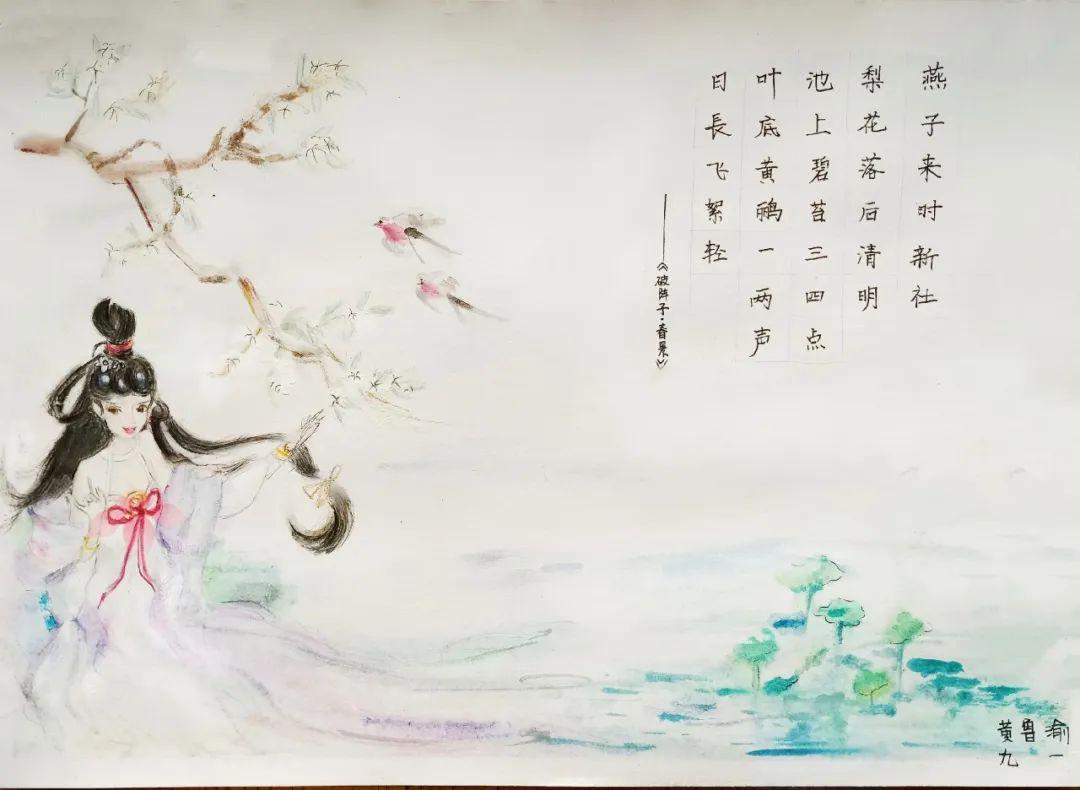 燕子来时新社
梨花落后清明
池上碧苔三四点
叶底黄鹂一两声
日長飞絮轻
——《破阵子·春景》
黄鲁渝
九一